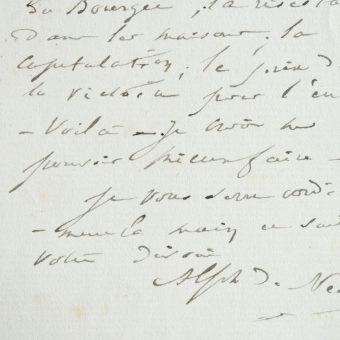 Du Bourget, la résista
dans les maisons, la
capitulation, le prix d
la victoire pour l'en
- Voilà - Je crois ne
pouvoir mieux faire -
Je vous serre cordi
- ment la main ce soi
votre dévoué
Alph de Neu